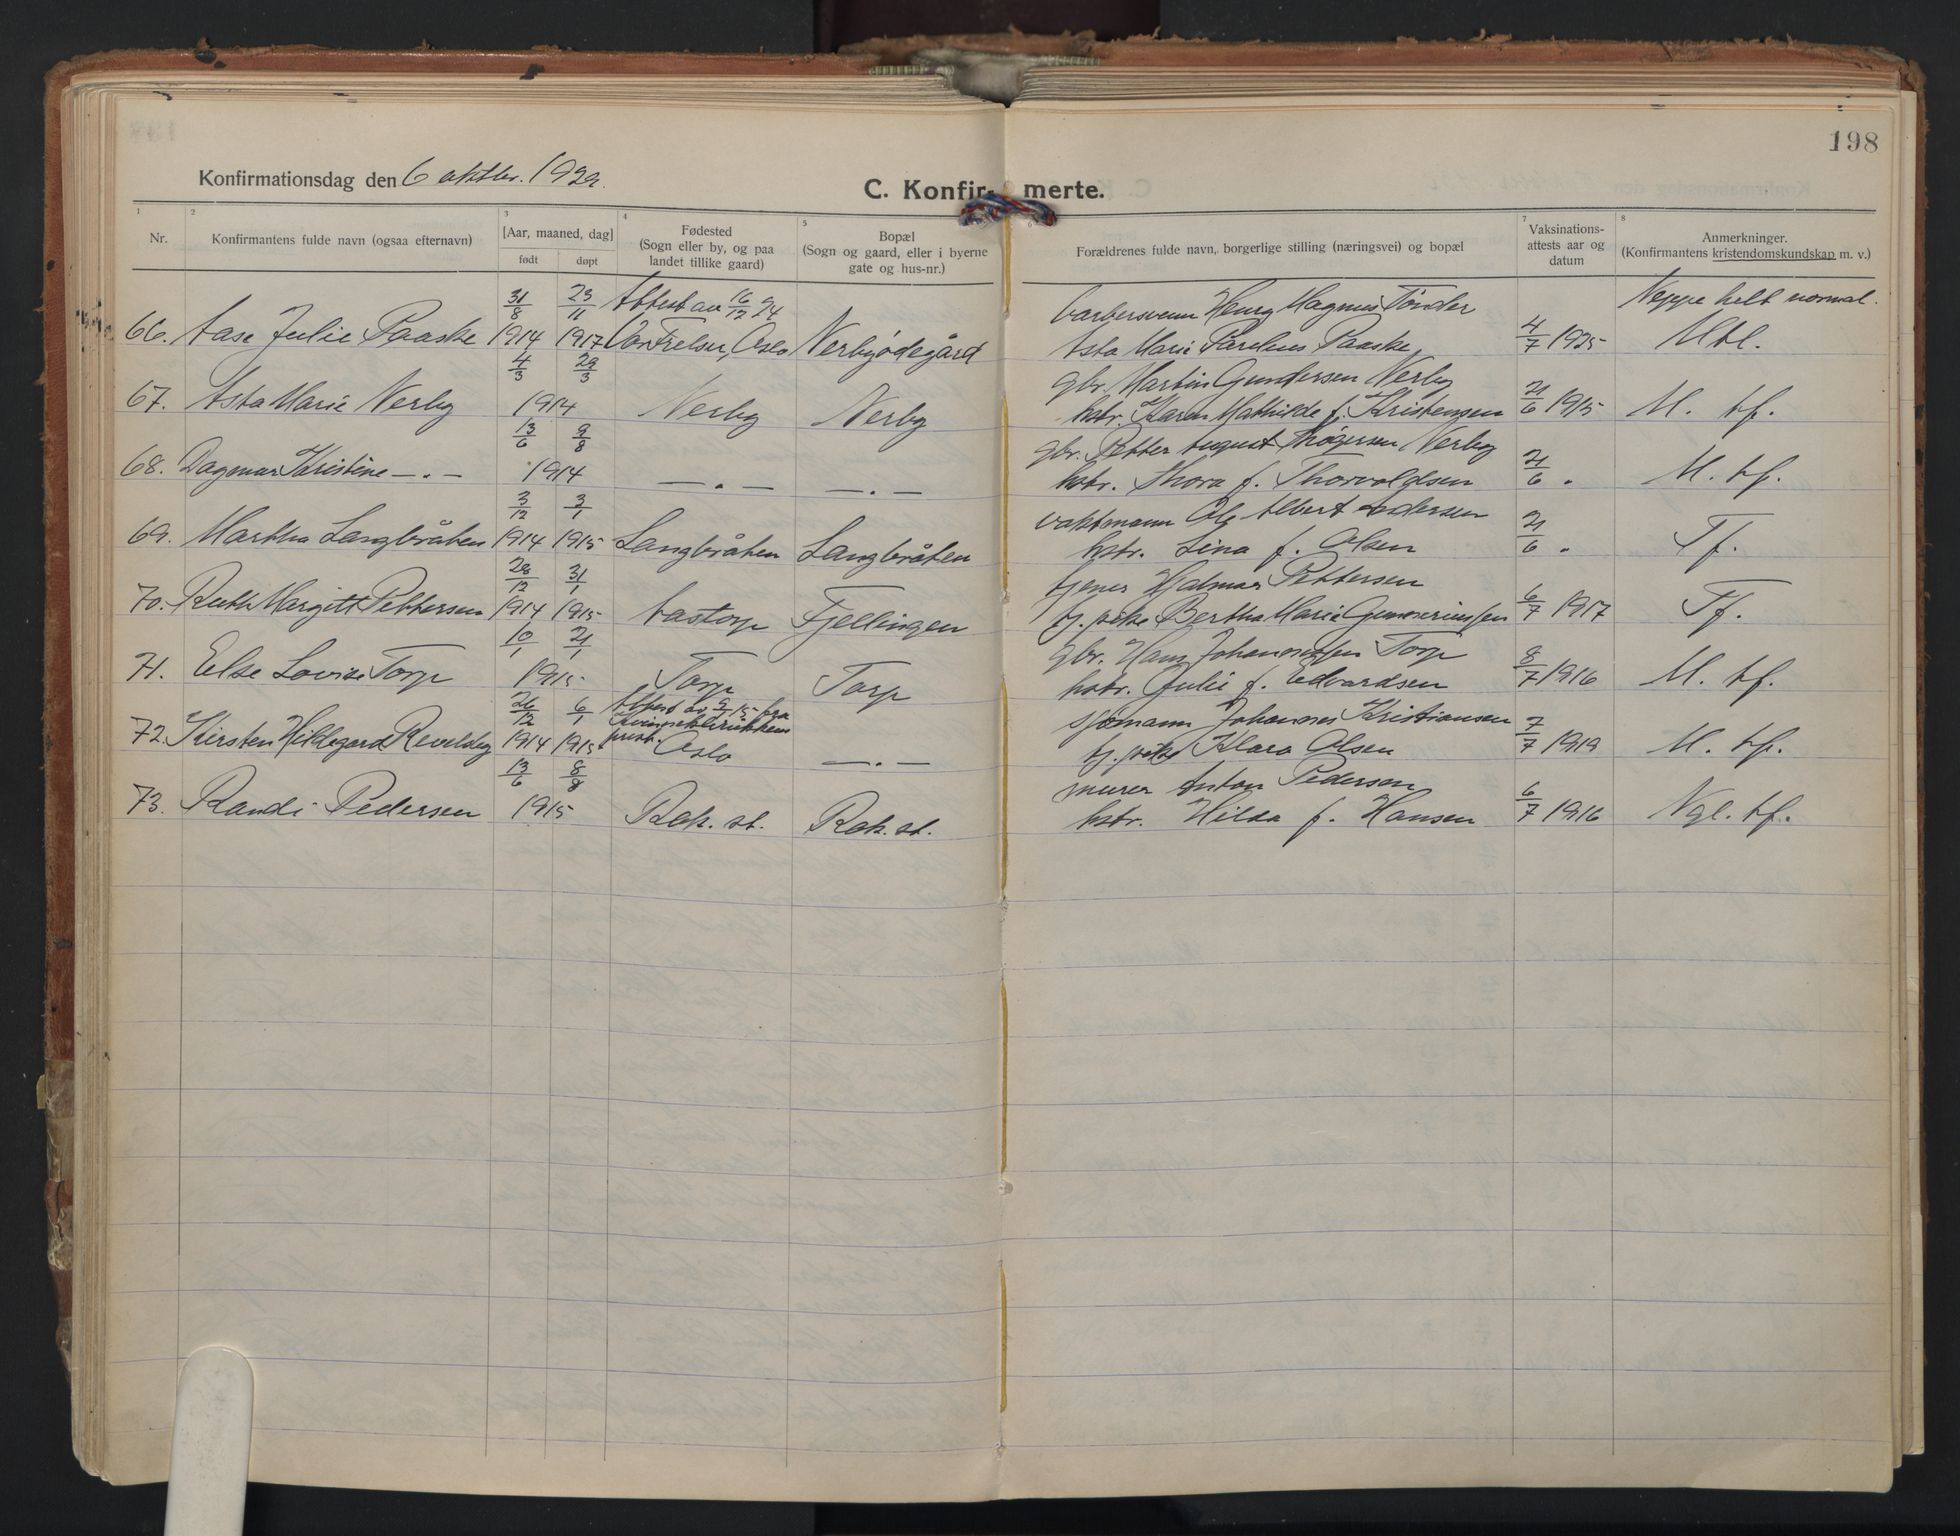 198
Konfirmationsdag den 6 oktbr. 1929.
C. Konfir- merte.
1 2 3 4 5 6 7 8
Nr.
Konfirmantens fulde navn (ogsaa efternavn)
[Aar, maaned, dag]
født døpt
Fødested
(Sogn eller by, og paa
landet tillike gaard)
Bopæl
(Sogn og gaard, eller i byerne
gate og hus-nr.)
Forældrenes fulde navn, borgerlige stilling (næringsvei) og bopæl
Vaksinations-
attests aar og
datum
Anmerkninger.
(Konfirmantens kristendomskundskap m. v.)
31/8 23/11 Attest av 16/12 24 barbersvenn Henry Magnus Tönder Neppe helt normal.
66. Aase Julie Paaske 1914 1917 Vor Frelser, Oslo Nerbyødegård Asta Marie Paaske 4/7 1925 Mtl.
4/3 29/3 gbr. Martin Gundersen Nerby
67. Asta Marie Nerby 1914 Nerby Nerby hstr. Karen Mathilde f. Kristensen 21/6 1915 M. tf.
13/6 9/8 gbr. Petter August Thøgersen Nerby
68. Dagmar Kristine —.— 1914 —.— —.— hstr. Thora f. Thorvaldsen 21/6 " M. tf.
3/12 3/1 vaktmann Ole Albert Andersen
69. Martha Langbråten 1914 1915 Langbråten Langbråten hstr. Lina f. Olsen 21/6 " Tf.
28/12 31/1 tjener Hjalmar Pettersen
70. Ruth Margitt Pettersen 1914 1915 Aastorp Fjellingen tj. pike Bertha Marie 6/7 1917 Tf.
10/1 21/1 gbr. Hans Johannessen Torp
71. Else Lovise Torp 1915 Torp Torp hstr. Julie f. Edvardsen 8/7 1916 M. tf.
26/12 6/1 Attest av 2/1 15 fra sjömann Johannes Kristiansen
72. Kirsten Hildegard Revelsby 1914 1915 Kvinneklinikkens prest. Oslo —.— tj. pike Klara Olsen 7/7 1919 M. tf.
13/6 8/8 murer Anton Pedersen
73. Randi Pedersen 1915 Rak. st. Rak. st. hstr. Hilda f. Hansen 6/7 1916 Ngl. tf.